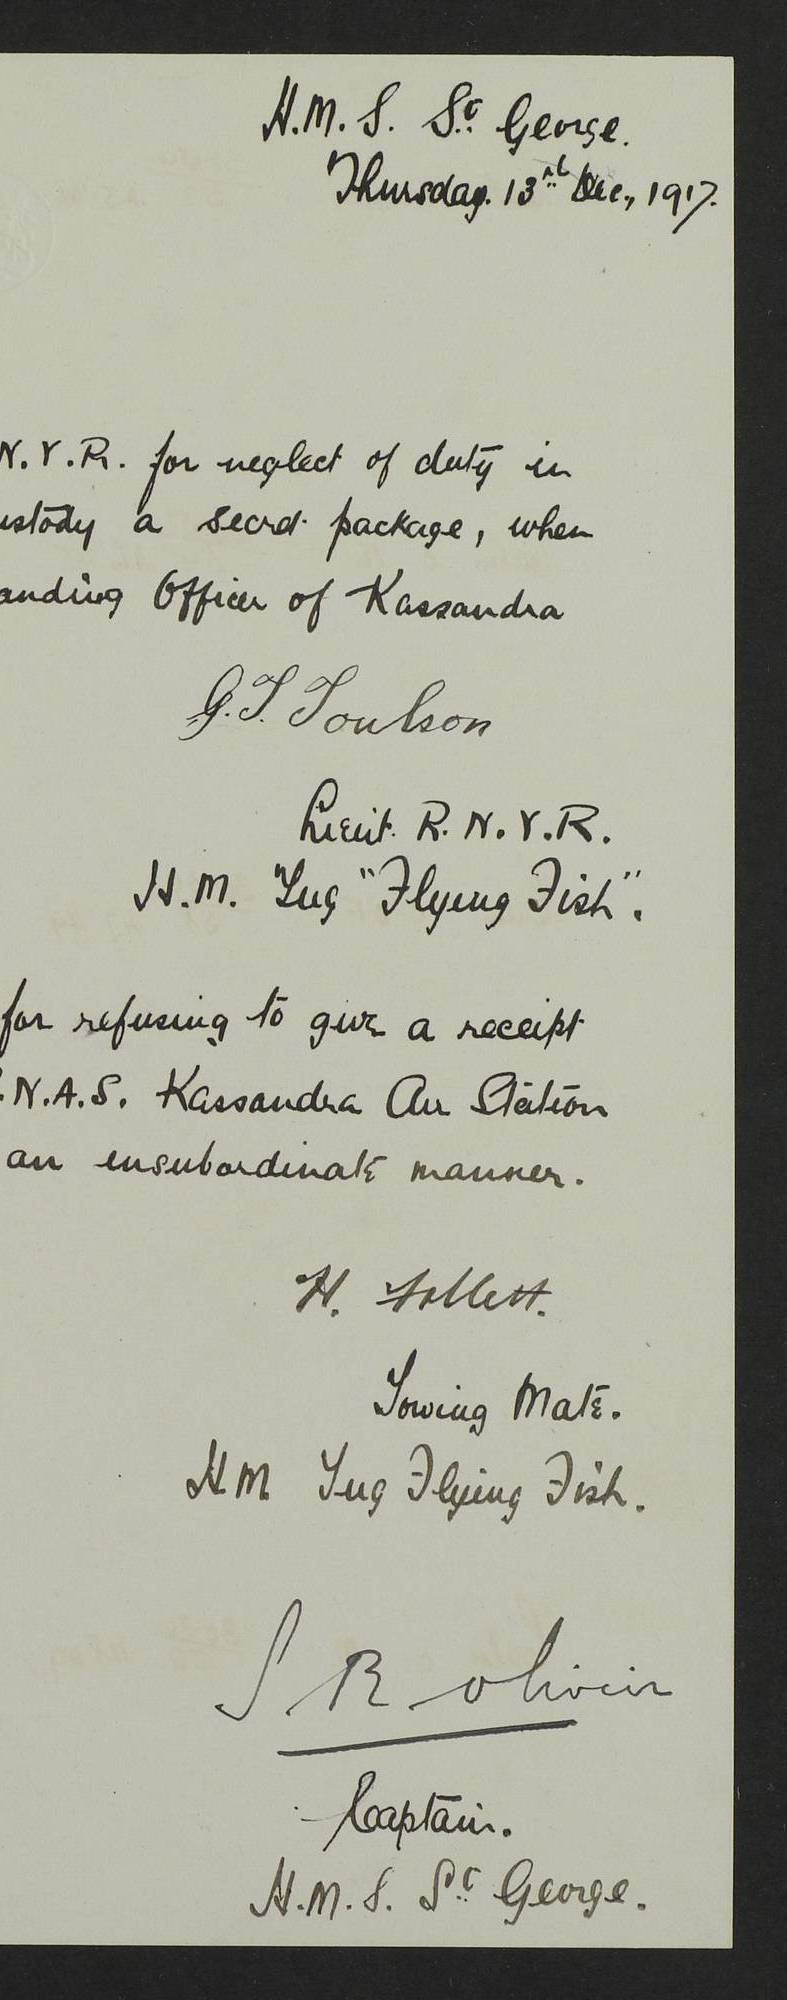 H.M.S. St. George.
Thursday. 13th Dec., 1917.
N.V.R. for neglect of duty in
ustody a secret package, when
anding Officer of Kassandra
G.T. Toulson
Lieut. R.N.V.R.
H.M. Tug "Flying Fish".
for refusing to give a receipt
.N.A.S. Kassandra Air Station
an insubordinate manner.
H. Follett.
Towing Mate.
HM Tug Flying Fish.
S R Olivier
Captain.
H.M.S. St. George.